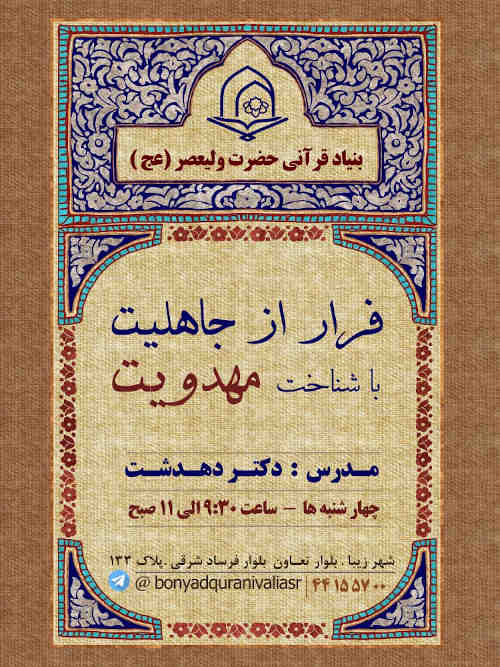 بنیاد قرآنی حضرت ولیعصر (عج)
فرار از جاهلیت
با شناخت مهدویت
مدرس : دکتر دهدشت
چهار شنبه ها - ساعت ۹:۳۰ الی ۱۱ صبح
شهر زیبا . بلوار تعاون بلوار فرساد شرقی .پلاک ۱۳۳
@ bonyadquranivaliasr | ۴۴ ۱۵ ۵۷ ۰۰